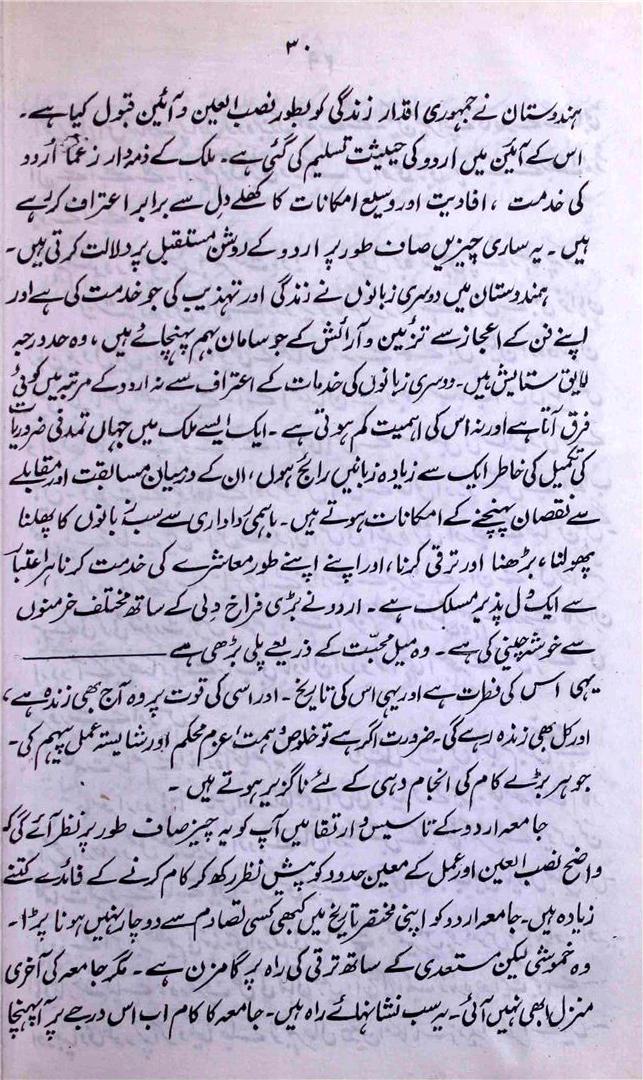 ۳۰
ہندوستان نے جمہوری اقدار زندگی کو بطور نصب العین و آئین قبول کیا ہے۔
اس کے آئین میں اردو کی حیثیت تسلیم کی گئی ہے۔ ملک کے ذمہ دار زعما اردو
کی خدمت ، افادیت اور وسیع امکانات کا کھلے دل سے برابر اعتراف کر رہے
ہیں۔ یہ ساری چیزیں صاف طور پر اردو کے روشن مستقبل پر دلالت کرتی ہیں۔
ہندوستان میں دوسری زبانوں نے زندگی اور تہذیب کی جو خدمت کی ہے اور
اپنے فن کے اعجاز سے تزئین و آرائش کے جو سامان بہم پہنچائے ہیں، وہ حد درجہ
لایق ستایش ہیں۔ دوسری زبانوں کی خدمات کے اعتراف سے نہ اردو کے مرتبہ میں کوئی
فرق آتا ہے اور نہ اس کی اہمیت کم ہوتی ہے۔ ایک ایسے ملک میں جہاں تمدنی ضروریات
کی تکمیل کی خاطر ایک سے زیادہ زبانیں رائج ہوں، ان کے درمیان مسابقت اور مقابلے
سے نقصان پہنچنے کے امکانات ہوتے ہیں۔ باہمی رواداری سے سب زبانوں کا پھلنا
پھولنا، بڑھنا اور ترقی کرنا، اور اپنے اپنے طور معاشرے کی خدمت کرنا ہر اعتبار
سے ایک دل پذیر مسلک ہے۔ اردو نے بڑی فراخ دلی کے ساتھ مختلف خرمنوں
سے خوشہ چینی کی ہے۔ وہ میل محبّت کے ذریعے پلی بڑھی ہے ــــــــــــ
یہی اس کی فطرت ہے اور یہی اس کی تاریخ۔ اور اسی کی قوت پر وہ آج بھی زندہ ہے،
اور کل بھی زندہ رہے گی۔ ضرورت اگر ہے تو خلوص و ہمت، عزم محکم اور شایستہ عمل پیہم کی۔
جو ہر بڑے کام کی انجام دہی کے لئے ناگزیر ہوتے ہیں۔
جامعہ اردو کے تاسیس و ارتقا میں آپ کو یہ چیز صاف طور پر نظر آئے گی کہ
واضح نصب العین اور عمل کے معین حدود کو پیش نظر رکھ کر کام کرنے کے فائدے کتنے
زیادہ ہیں۔ جامعہ اردو کو اپنی مختصر تاریخ میں کبھی کسی تصادم سے دوچار نہیں ہونا پڑا۔
وہ خموشی لیکن مستعدی کے ساتھ ترقی کی راہ پر گامزن ہے۔ مگر جامعہ کی آخری
منزل ابھی نہیں آئی۔ یہ سب نشانہائے راہ ہیں۔ جامعہ کا کام اب اس درجے پر آ پہنچا